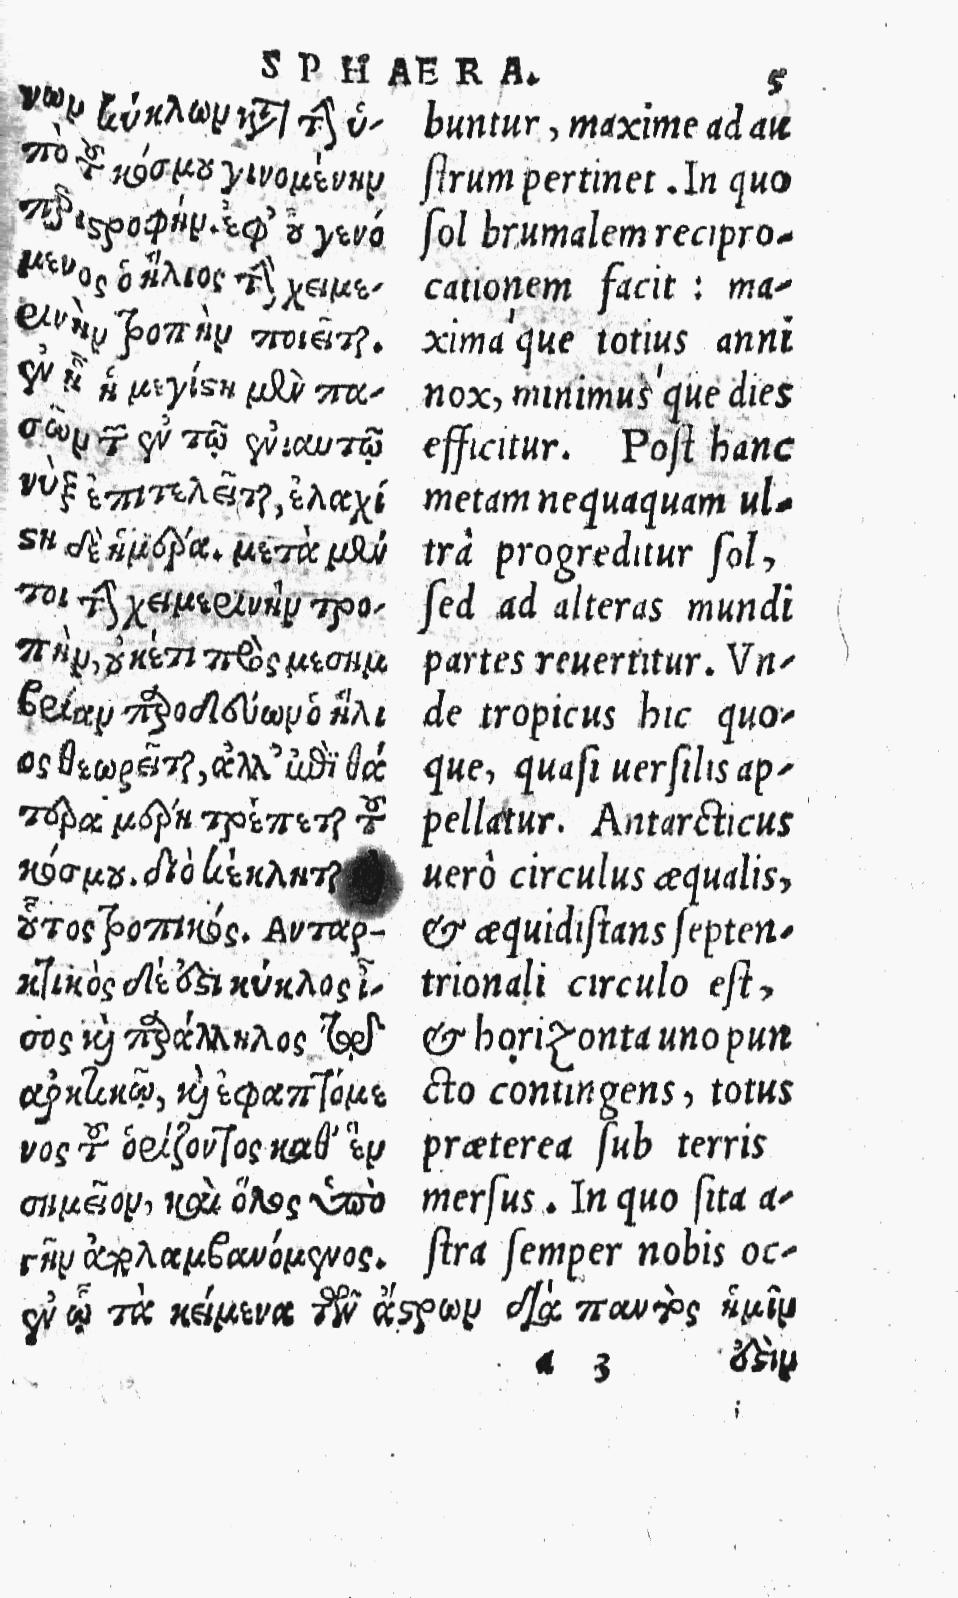 SPHAERA. 5
νων κύκλων κατὰ τὴν ὑ-
πὸ τοῦ κόσμου γινομένην
περιστροφήν. ἐφ' οὗ γενό
μενος ὁ ἥλιος τὴν χειμε-
ρινὴν τροπὴν ποιεῖται.
ἐν ᾗ ἡ μεγίστη μὲν πα-
σῶν τῶν ἐν τῷ ἐνιαυτῷ
νὺξ ἐπιτελεῖται, ἐλαχί
στη δὲ ἡμέρα. μετὰ μέν
τοι τὴν χειμερινὴν τρο-
πὴν, οὐκέτι πρὸς μεσημ
βρίαν παροδεύων ὁ ἥλι
ος θεωρεῖται, ἀλλ' ἐπὶ θά
τερα μέρη τρέπεται τοῦ
κόσμου. διὸ κέκληται
οὗτος τροπικός. Ανταρ-
κτικὸς δέ ἐστι κύκλος ἴ-
σος καὶ παράλληλος τῷ
ἀρκτικῷ, καὶ ἐφαπτόμε
νος τοῦ ὁρίζοντος καθ' ἓν
σημεῖον, καὶ ὅλος ὑπὸ
γῆν ἀπολαμβανόμενος.
ἐν ᾧ τὰ κείμενα τῶν ἄστρων διὰ παντὸς ἡμῖν
buntur, maxime ad au
strum pertinet. In quo
sol brumalem recipro-
cationem facit: ma-
xima'que totius anni
nox, minimus'que dies
efficitur. Post hanc
metam nequaquam ul-
trà progreditur sol,
sed ad alteras mundi
partes reuertitur. Vn-
de tropicus hic quo-
que, quasi uersilis ap-
pellatur. Antarcticus
uerò circulus æqualis,
& æquidistans septen-
trionali circulo est,
& horizonta uno pun
cto contingens, totus
præterea sub terris
mersus. In quo sita a-
stra semper nobis oc-
a 3 ἐστὶν